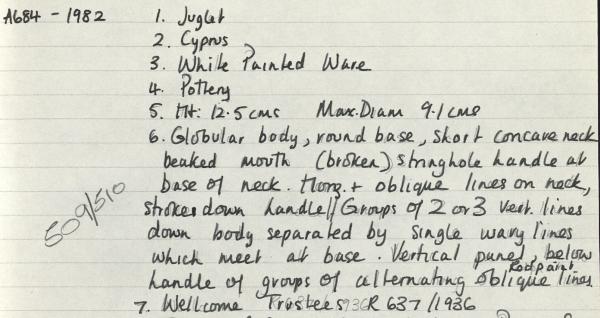 A684 - 1982 1. Juglet
2. Cyprus
3. White Painted Ware
4. Pottery
5. Ht: 12.5cms Max.Diam 9.1cms
6. Globular body, round base, short concave neck
beaked mouth (broken) stringhole handle at
base of neck. Horz. + oblique lines on neck,
strokes down handle// Groups of 2 or 3 vert. lines
509/510
down body separated by single wavy lines
which meet at base. Vertical panel, below
handle of groups of alternating oblique lines.
Red paint
7. Wellcome Trustees R 637/1936